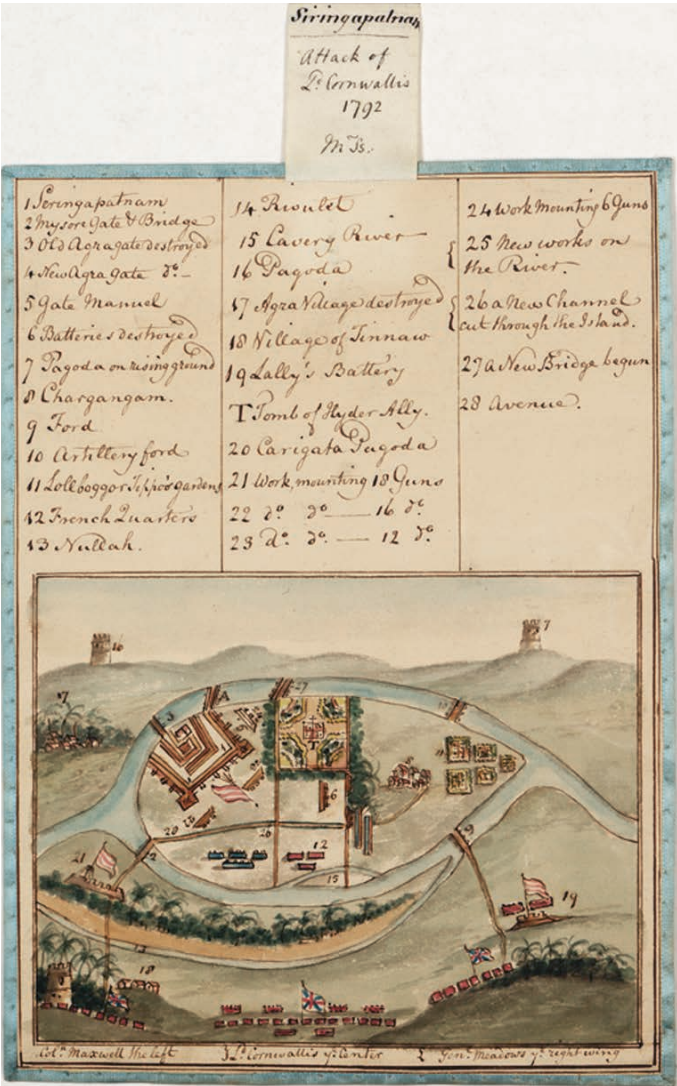 Siringapatnam
Attack of
Ld. Cornwallis
1792
1 Seringapatnam
2 Mysore Gate & Bridge
3 Old Agra gate destroyed
4 New Agra gate do.
5 Gate Manuel
6 Batteries destroyed
7 Pagoda on rising ground
8 Chargangam.
9 Ford
10 Artillery ford
11 Lollboggor Tippo's gardens
12 French Quarters
13 Nullah.
14 Rivulet
15 Cavery River
16 Pagoda
17 Agra Village destroyed
18 Village of Tinnaw
19 Lally's Battery
T Tomb of Hyder Ally.
20 Carigata Pagoda
21 Work, mounting 18 Guns
22 do. do. — 16 do.
23 do. do. — 12 do.
24 Work Mounting 6 Guns
25 New works on
the River.
26 a New Channel
cut through the Island.
27 a New Bridge begun
28 Avenue.
16
7
17
3
4
27
10
T
11
6
22
28
26
12
2
9
21
15
19
13
18
Coln. Maxwell the left
Ld. Cornwallis ye. Center
Genl. Meadows ye. right wing